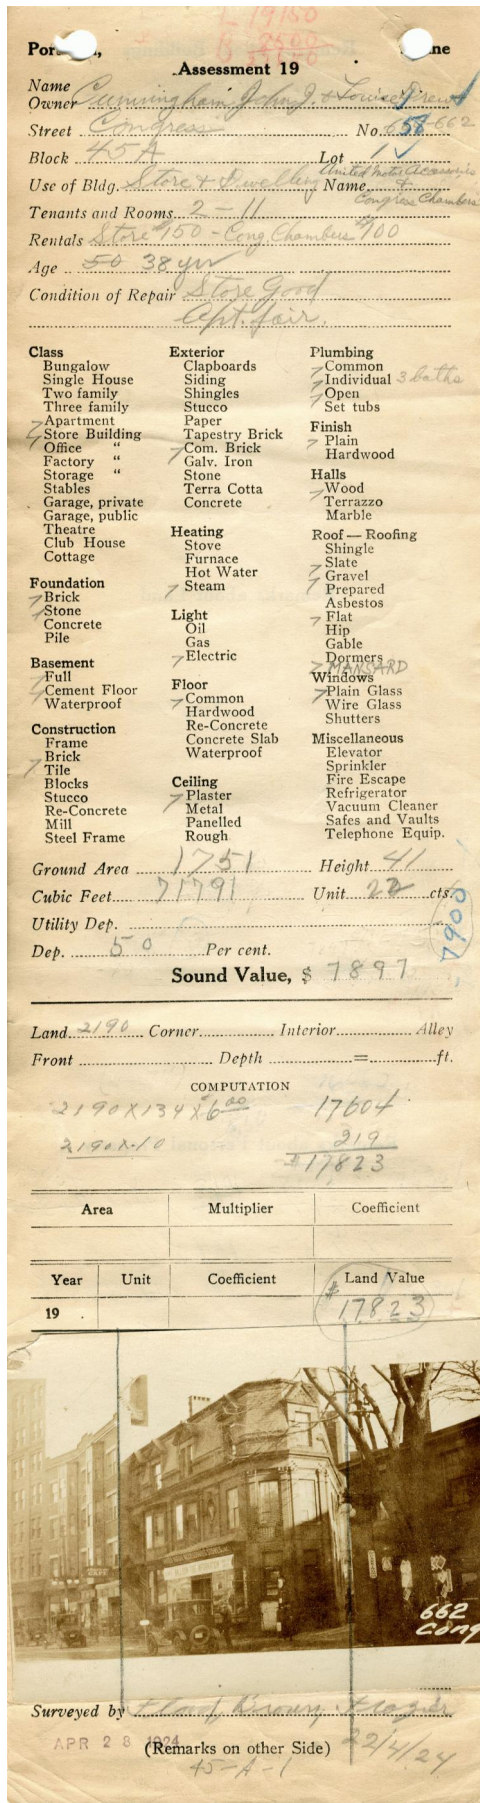 L 19150
B 2500
Por ne
Assessment 19
Name
Owner Cunningham, John J. & Louise Drew
Street Congress No. 658-662
Block 45A Lot 1
Use of Bldg. Store & Dwelling Name United Motor Accessories & Congress Chambers
Tenants and Rooms 2 - 11
Rentals Store $150 - Cong. Chambers $100
Age 50 38 yrs
Condition of Repair Store Good
Apt. fair.
Class
Bungalow
Single House
Two family
Three family
Apartment
Store Building
Office "
Factory "
Storage "
Stables
Garage, private
Garage, public
Theatre
Club House
Cottage
Foundation
Brick
Stone
Concrete
Pile
Basement
Full
Cement Floor
Waterproof
Construction
Frame
Brick
Tile
Blocks
Stucco
Re-Concrete
Mill
Steel Frame
Exterior
Clapboards
Siding
Shingles
Stucco
Paper
Tapestry Brick
Com. Brick
Galv. Iron
Stone
Terra Cotta
Concrete
Heating
Stove
Furnace
Hot Water
Steam
Light
Oil
Gas
Electric
Floor
Common
Hardwood
Re-Concrete
Concrete Slab
Waterproof
Ceiling
Plaster
Metal
Panelled
Rough
Plumbing
Common
Individual 3 baths
Open
Set tubs
Finish
Plain
Hardwood
Halls
Wood
Terrazzo
Marble
Roof — Roofing
Shingle
Slate
Gravel
Prepared
Asbestos
Flat
Hip
Gable
Dormers
MANSARD
Windows
Plain Glass
Wire Glass
Shutters
Miscellaneous
Elevator
Sprinkler
Fire Escape
Refrigerator
Vacuum Cleaner
Safes and Vaults
Telephone Equip.
Ground Area 1751 Height 41
Cubic Feet 71791 Unit 22 cts.
7900
Utility Dep.
Dep. 50 Per cent.
Sound Value, $ 7897
Land 2190 Corner Interior Alley
Front Depth = ft.
COMPUTATION
2190 X 134 X $6.00 17604
2190 X .10 219
$17823
Area Multiplier Coefficient
Year Unit Coefficient Land Value
19 $17823
CAFE
662
Cong
Surveyed by
APR 28 1924
(Remarks on other Side)
22/4/24
45-A-1